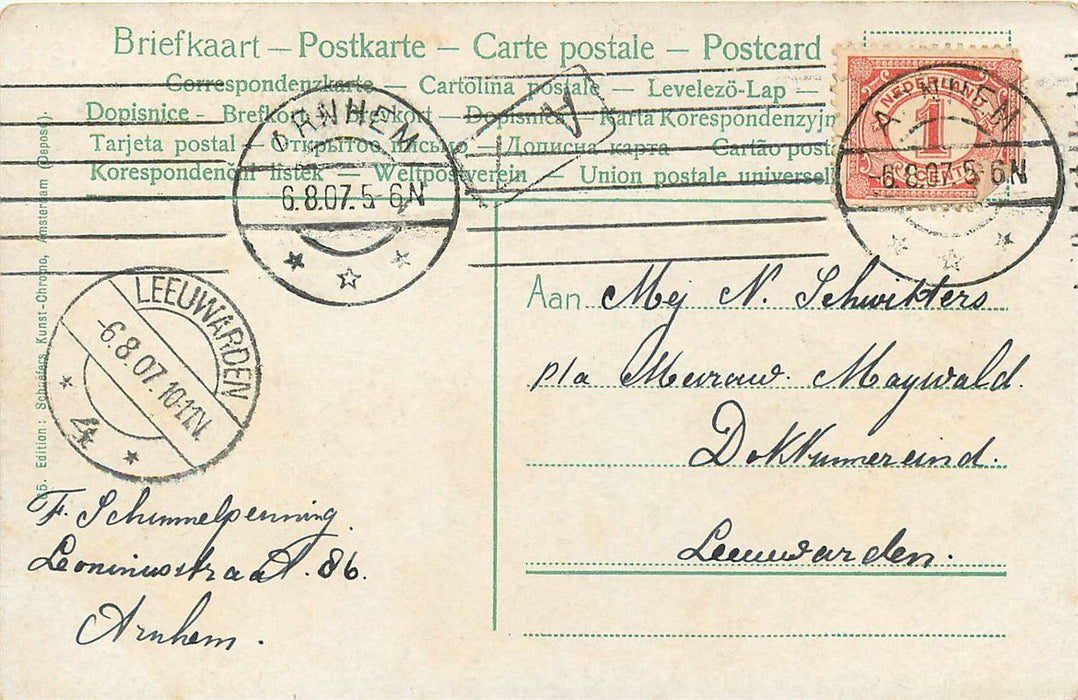 Briefkaart — Postkarte — Carte postale — Postcard
Correspondenzkarte — Cartolina postale — Levelező-Lap —
Dopisnice - Brefkort - Dopisnica - Karta Korespondenzyjn
Tarjeta postal — Открытое письмо — Дописна карта — Cartão post
Korespondenčni listek — Weltpostverein — Union postale universell
NEDERLAND
1
CENT
ARNHEM
6.8.07. 5-6N
A
A NHEM
-6.8.07. 5-6N
LEEUWARDEN
-6.8.07. 10-12N.
4
Edition: Schaefers Kunst-Chromo, Amsterdam (Deposé).
Aan Mej N. Schwitters
p/a Mevrouw. Maywald.
Dokkumereind.
Leeuwarden.
F. Schimmelpenning.
Leoninusstraat. 86.
Arnhem.